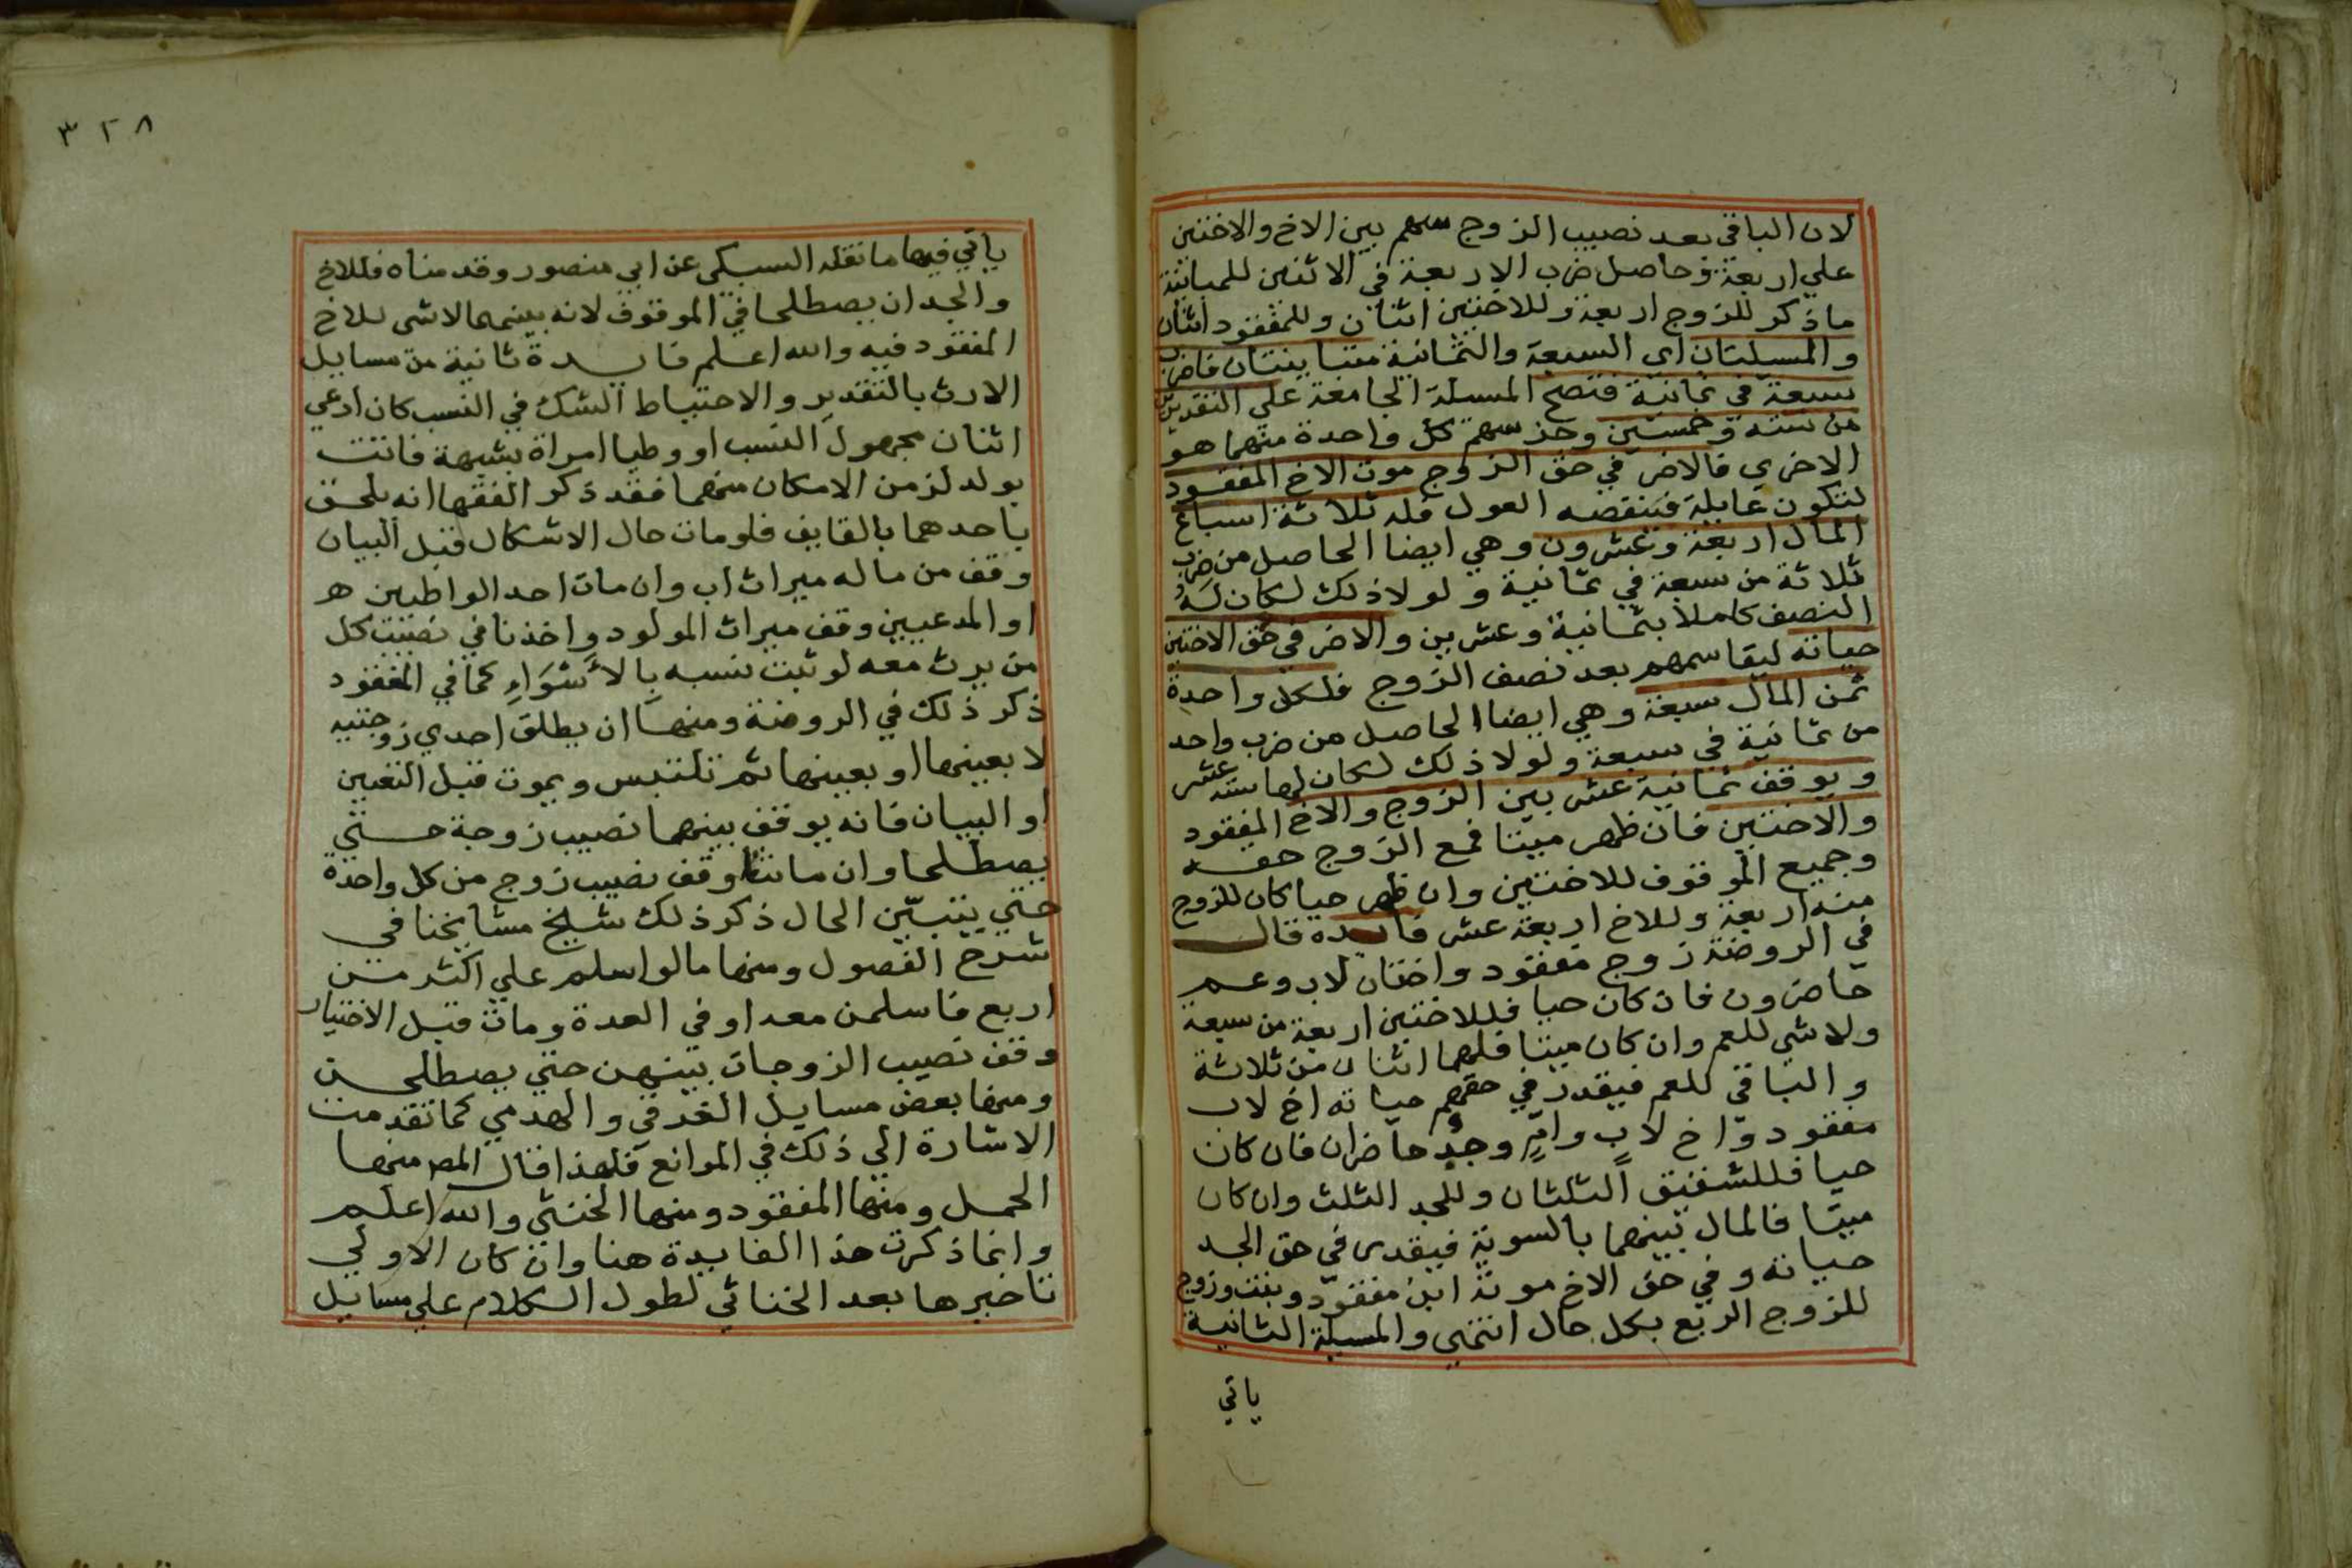 لان الباقي بعد نصيب الزوج سهم بين الاخ والاختين
علي اربعة فحاصل ضرب الاربعة في الاثنين للمباينة
ما ذكر للزوج اربعة وللاختين اثنان وللمفقود اثنان
والمسيلتان اي السبعة والثمانية متباينتان فاضرب
سبعة في ثمانية فتصح المسيلة الجامعة علي التقديرين
من ستة وخمسين وجزسهم كل واحدة منهما هو
الاخري فالاضر في حق الزوج موت الاخ المفقود
لتكون عايلة فتنقصه العول فله ثلاثة اسباع
المال اربعة وعشرون وهي ايضا الحاصل من ضرب
ثلاثة من سبعة في ثمانية ولولا ذلك لكان له
النصف كاملا بثمانية وعشرين والاضر في حق الاختين
حياته ليقاسمهم بعد نصف الزوج فلكل واحدة
ثمن المال سبعة وهي ايضا الحاصل من ضرب واحد
من ثمانية في سبعة ولولا ذلك لكان لها ستة عشر
ويوقف ثمانية عشر بين الزوج والاخ المفقود
والاختين فان ظهر ميتا فمع الزوج حقه
وجميع الموقوف للاختين وان ظهر حيا كان للزوج
منه اربعة وللاخ اربعة عشر فايدة قال
في الروضة زوج مفقود واختان لاب وعم
حاضرون فان كان حيا فللاختين اربعة من سبعة
ولا شي للعم وان كان ميتا فلهما اثنان من ثلاثة
والباقي للعم فيقدر في حقهم حياته اخ لاب
مفقود واخ لاب وام وجد حاضران فان كان
حيا فللشقيق الثلثان وللجد الثلث وان كان
ميتا فالمال بينهما بالسوية فيقدر في حق الجد
حياته وفي حق الاخ موته ابن مفقود وبنت وزوج
للزوج الربع بكل حال انتهي والمسيلة الثانية
ياتي
٣٢٨
ياتي فيها ما نقله السبكي عن ابي منصور وقدمناه فللاخ
والجد ان يصطلحا في الموقوف لانه بينهما لا شي للاخ
المفقود فيه والله اعلم فايدة ثانية من مسايل
الارث بالتقدير والاحتياط الشك في النسب كان ادعي
اثنان مجهول النسب او وطيا امراة بشبهة فاتت
بولد لزمن الامكان منهما فقد ذكر الفقها انه يلحق
باحدهما بالقايف فلو مات حال الاشكال قبل البيان
وقف من ماله ميراث اب وان مات احد الواطيين ه
او المدعيين وقف ميراث المولود واخذنا في نصيب كل
من يرث معه لو ثبت نسبه بالاسواء كما في المفقود
ذكر ذلك في الروضة ومنها ان يطلق احدي زوجتيه
لا بعينها او بعينها ثم تلتبس ويموت قبل التعيين
او البيان فانه يوقف بينهما نصيب زوجة حتي
يصطلحا وان ماتتا وقف نصيب زوج من كل واحدة
حتي يتبين الحال ذكر ذلك شيخ مشايخنا في
شرح الفصول ومنها ما لو اسلم علي اكثر من
اربع فاسلمن معه او في العدة ومات قبل الاختيار
وقف نصيب الزوجات بينهن حتي يصطلحن
ومنها بعض مسايل الغرقي والهدمي كما تقدمت
الاشارة الي ذلك في الموانع فلهذا قال المص منها
الحمل ومنها المفقود ومنها الخنثي والله اعلم
وانما ذكرت هذا الفايدة هنا وان كان الاولي
تاخيرها بعد الخناثي لطول الكلام علي مسايل